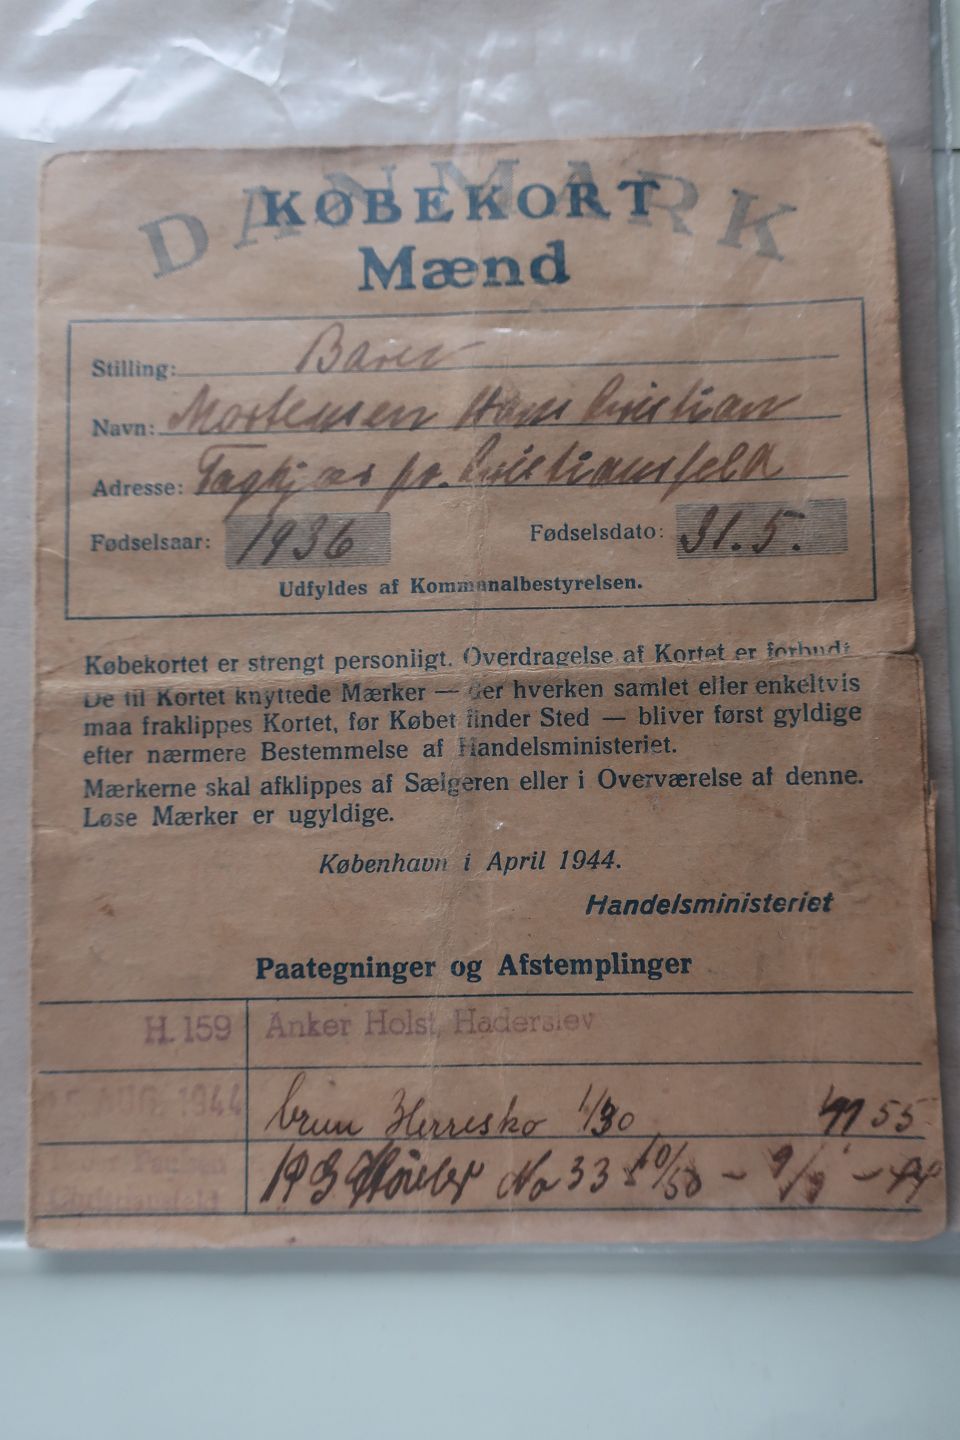 DANMARK
KØBEKORT
Mænd
Stilling: Barn
Navn: Mortensen Hans Cristian
Adresse: Tagkjær pr. Cristiansfeld
Fødselsaar: 1936 Fødselsdato: 31.5.
Udfyldes af Kommunalbestyrelsen.
Købekortet er strengt personligt. Overdragelse af Kortet er forbudt.
De til Kortet knyttede Mærker — der hverken samlet eller enkeltvis
maa fraklippes Kortet, før Købet finder Sted — bliver først gyldige
efter nærmere Bestemmelse af Handelsministeriet.
Mærkerne skal afklippes af Sælgeren eller i Overværelse af denne.
Løse Mærker er ugyldige.
København i April 1944.
Handelsministeriet
Paategninger og Afstemplinger
H. 159 Anker Holst, Haderslev
AUG. 1944 brun Herresko 1/30 55
Støvler No 33 10/50 -